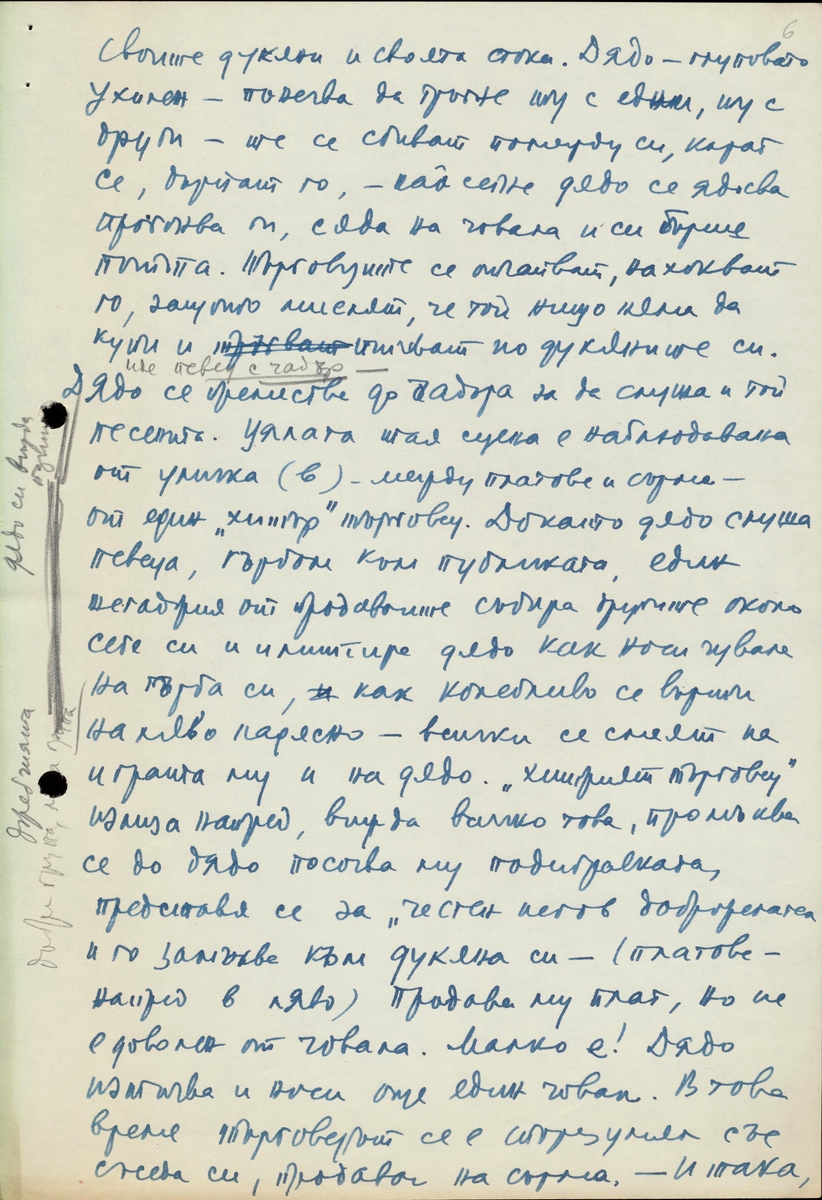 6
своите дукяни и своята стока. Дядо – глуповато
ухилен – почва да тръгне ту с един, ту с
други – те се сбиват помежду си, карат
се, дърпат го, – най сетне дядо се ядосва
прогонва ги, сяда на човала и си бърше
потьта. Търговците се отчайват, нахокват
го, защото мислят, че той нищо няма да
купи и тръгват отиват по дукяните си.
пее певец с чадър —
Дядо се премества до за да слуша и той
песента. Цялата тая сцена е наблюдавана
от уличка (в) – между платове и сърма –
от един „хитър" търговец. Докато дядо слуша
певеца, гърбом към публиката, един
от продавачите събира другите около
себе си и имитира дядо как носи чувала
на гърба си, и как колебливо се върти
на ляво надясно – всички се смеят на
играта му и на дядо. „Хитрият търговец"
излиза напред, вижда всичко това, промъква
се до дядо посочва му подигравката,
представя се за „честен негов доброжелател
и го замъкве към дукяна си – (платове –
напред в ляво) Продава му плат, но не
е доволен от човала. Малко е! Дядо
изтичва и носи още един човал. В това
време търговецът се е споразумял със
съседа си, продавач на сърма. – И така,
дядо си вижда